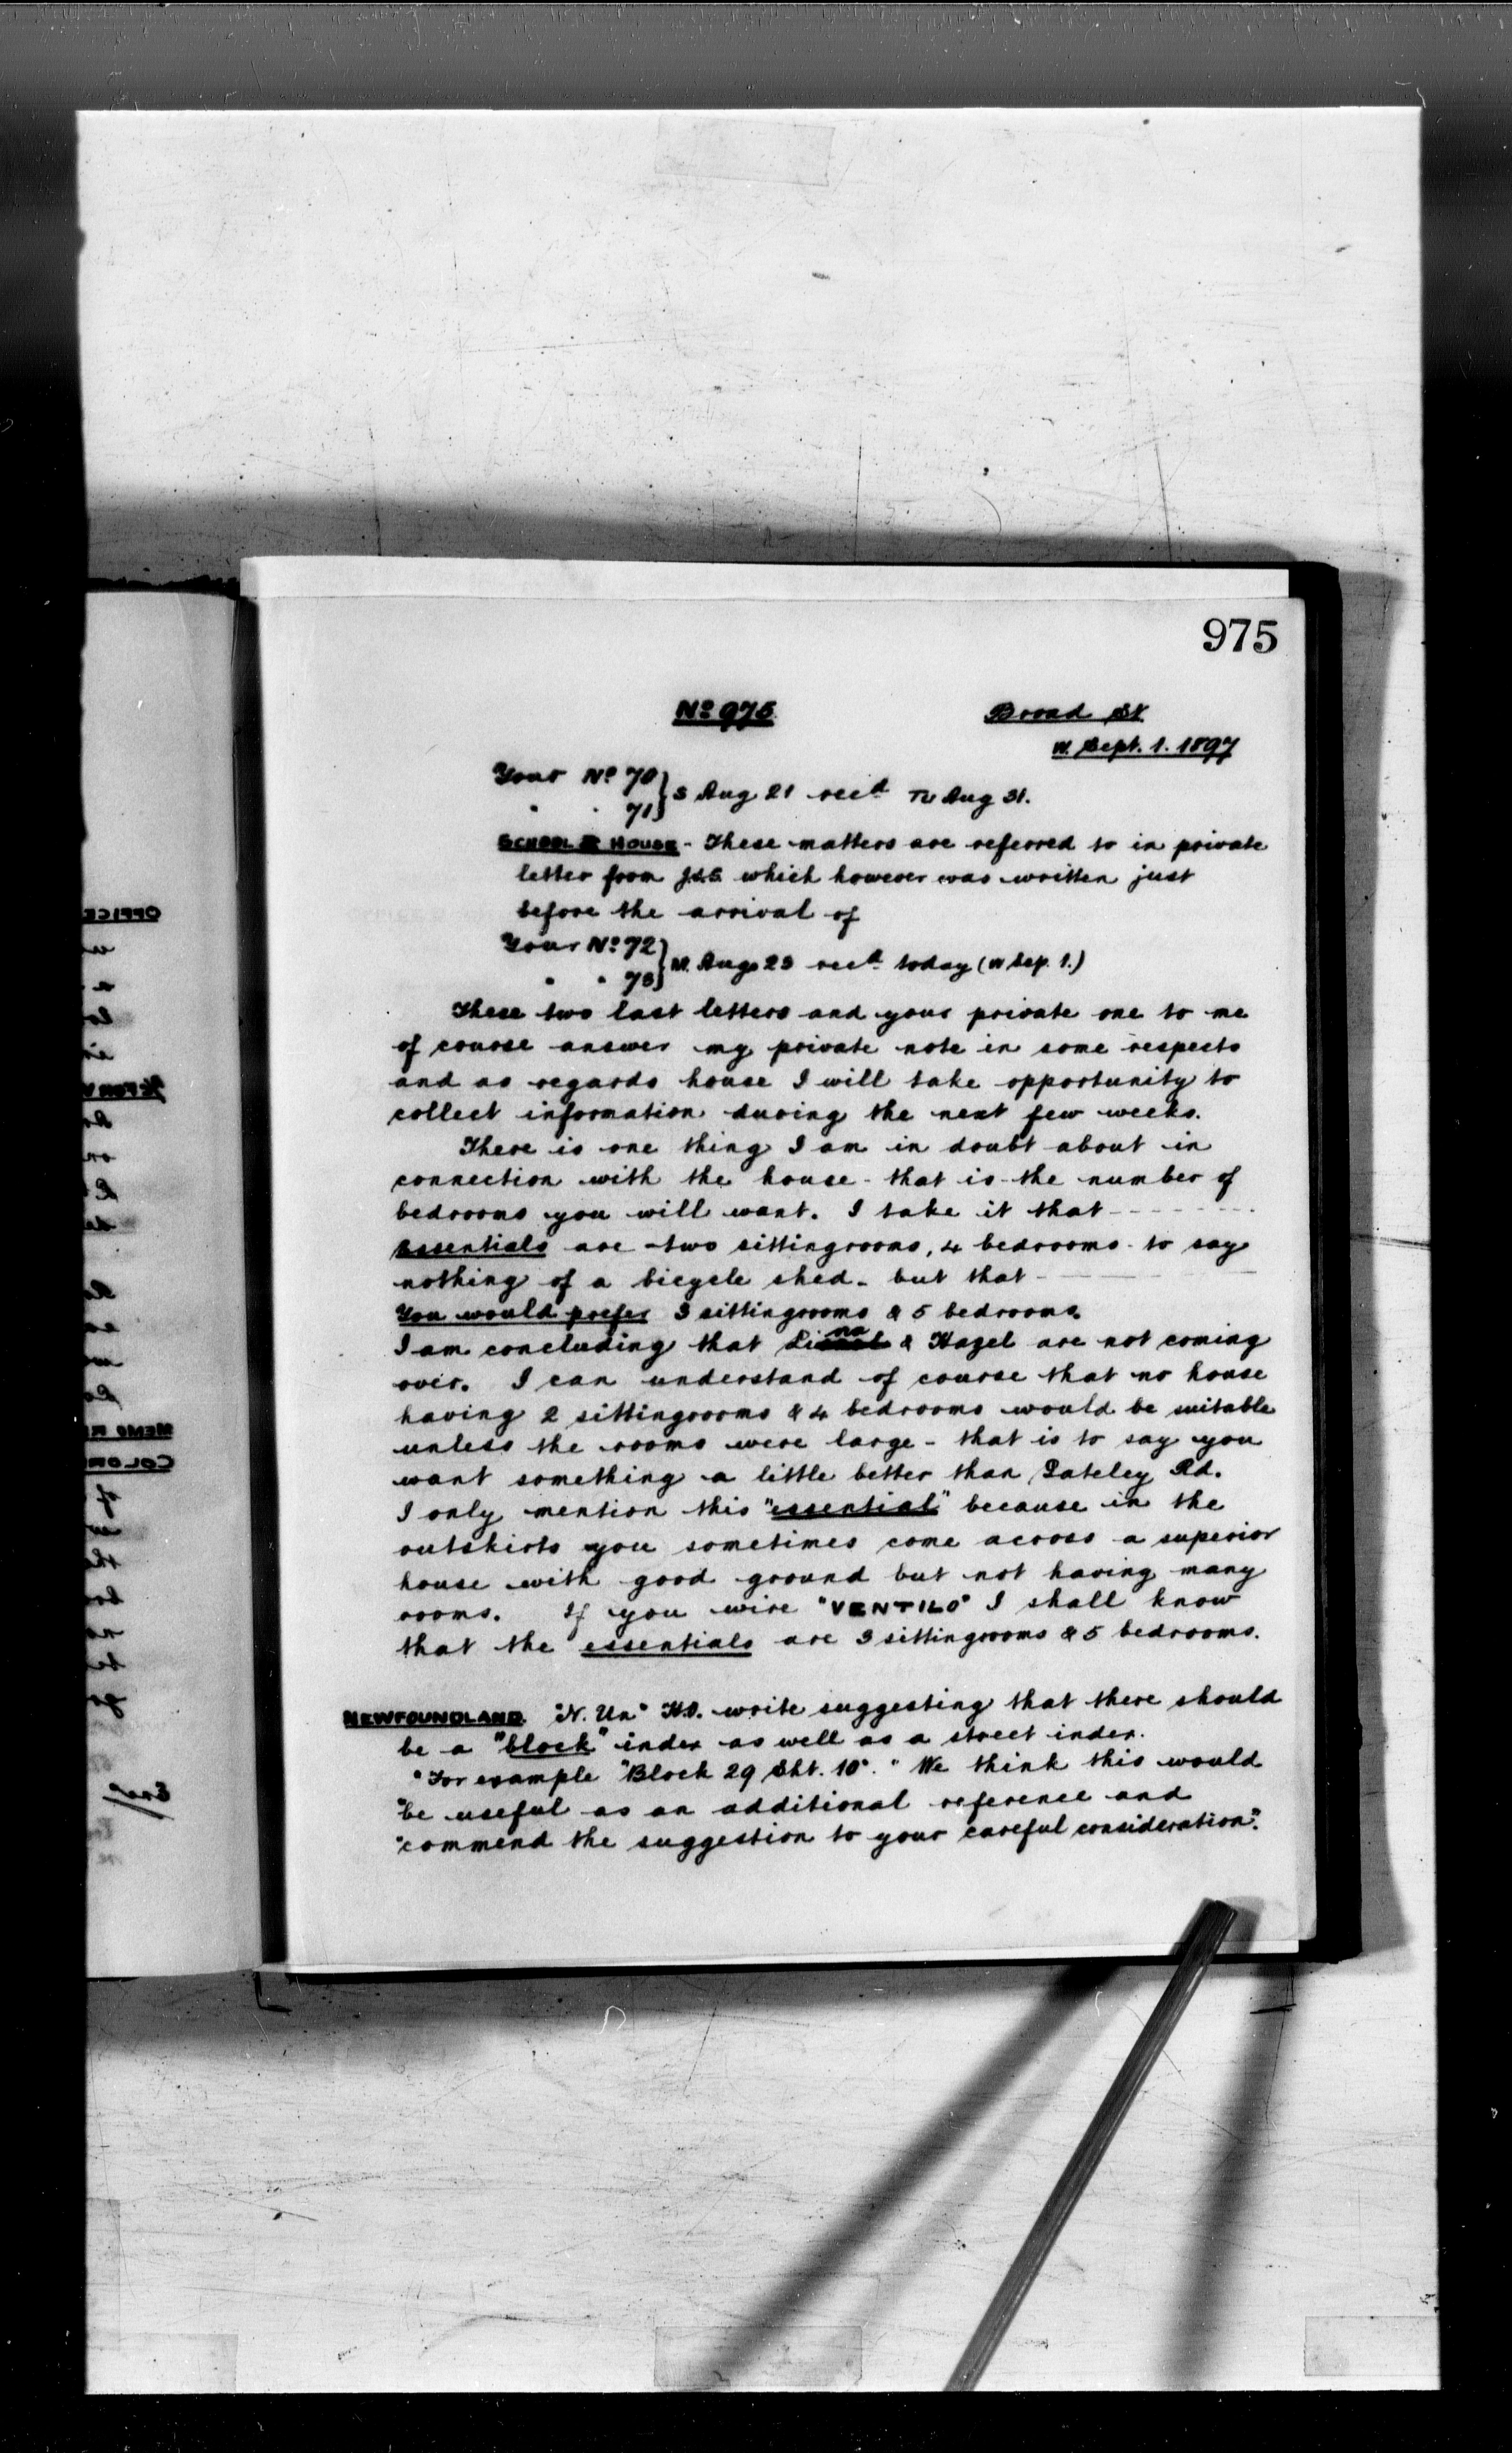 975
No 975
Broad St
W. Sept. 1. 1897
Your No 70 } S Aug 21 recd Tu Aug 31.
" " 71 }
SCHOOL & HOUSE - These matters are referred to in private
letter from which however was written just
before the arrival of
Your No 72 } M. Aug 23 recd today (W Sep. 1.)
" " 73 }
These two last letters and your private one to me
of course answer my private note in some respects
and as regards house I will take opportunity to
collect information during the next few weeks.
There is one thing I am in doubt about in
connection with the house - that is the number of
bedrooms you will want. I take it that - - - - - - -
Essentials are two sittingrooms, 4 bedrooms - to say
nothing of a bicycle shed - but that -
You would prefer 3 sittingrooms & 5 bedrooms.
I am concluding that Lina & Hazel are not coming
over. I can understand of course that no house
having 2 sittingrooms & 4 bedrooms would be suitable
unless the rooms were large - that is to say you
want something a little better than Gateley Rd.
I only mention this "essential" because in the
outskirts you sometimes come across a superior
house with good ground but not having many
rooms. If you wire "VENTILO" I shall know
that the essentials are 3 sittingrooms & 5 bedrooms.
NEWFOUNDLAND. "N. Un" H.O. write suggesting that there should
be a "block" index as well as a street index.
"For example "Block 29 Sht. 10". "We think this would
"be useful as an additional reference and
"commend the suggestion to your careful consideration".